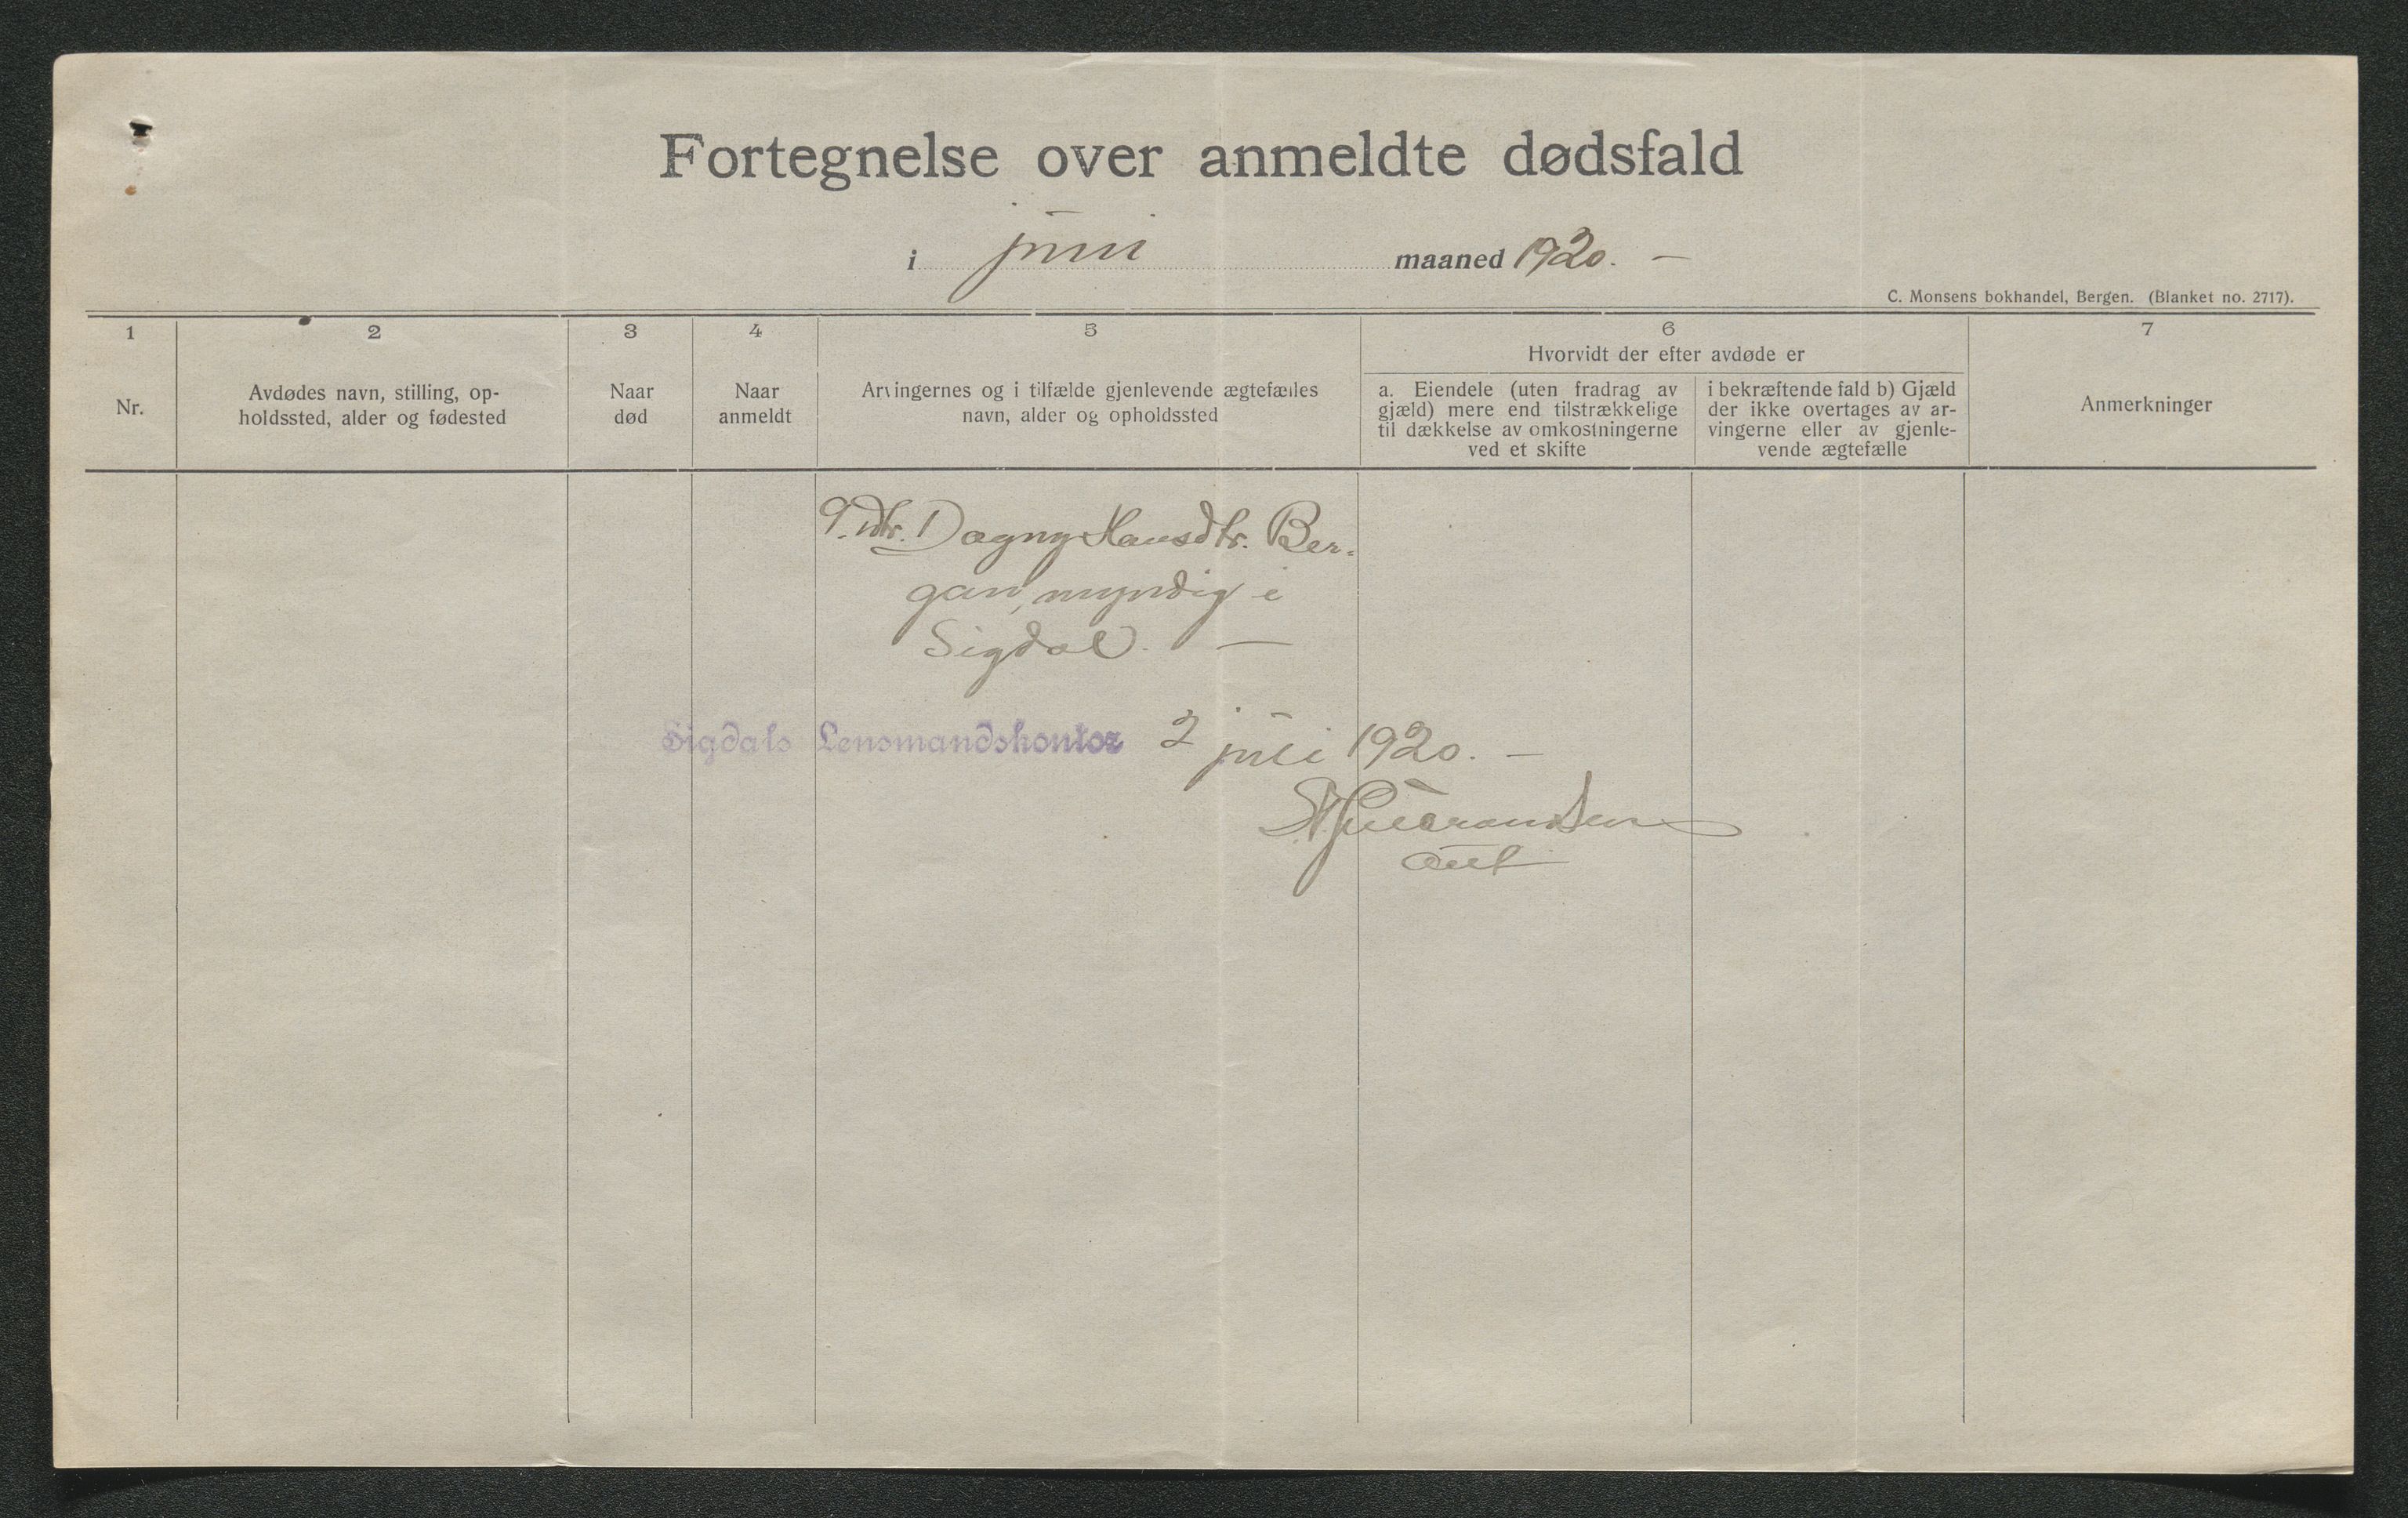 Fortegnelse over anmeldte dødsfald
i juni maaned 1920. —
C. Monsens bokhandel, Bergen. (Blanket no. 2717).
1 2 3 4 5 6 7
Hvorvidt der efter avdøde er
Nr.
Avdødes navn, stilling, op-
holdssted, alder og fødested
Naar
død
Naar
anmeldt
Arvingernes og i tilfælde gjenlevende ægtefælles
navn, alder og opholdssted
a. Eiendele (uten fradrag av
gjæld) mere end tilstrækkelige
til dækkelse av omkostningerne
ved et skifte
i bekræftende fald b) Gjæld
der ikke overtages av ar-
vingerne eller av gjenle-
vende ægtefælle
Anmerkninger
9. Dtr. Dagny Hansdtr. Ber-
gan, myndig i
Sigdal. —
Sigdals Lensmandskontor 2 juli 1920. —